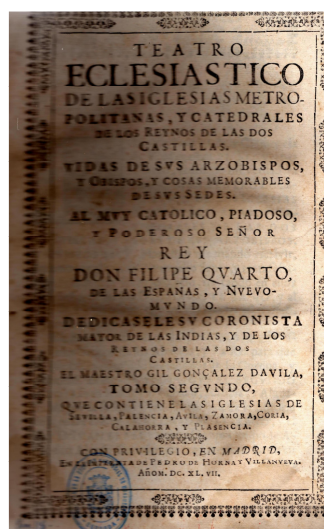 TEATRO
ECLESIASTICO
DE LAS IGLESIAS METRO-
POLITANAS, Y CATEDRALES
DE LOS REYNOS DE LAS DOS
CASTILLAS.
VIDAS DE SVS ARZOBISPOS,
Y OBISPOS, Y COSAS MEMORABLES
DE SVS SEDES.
AL MVY CATOLICO, PIADOSO,
Y PODEROSO SEÑOR
REY
DON FILIPE QVARTO,
DE LAS ESPAÑAS, Y NVEVO-
MVNDO.
DEDICASELE SV CORONISTA
MAYOR DE LAS INDIAS, Y DE LOS
REYNOS DE LAS DOS
CASTILLAS.
EL MAESTRO GIL GONÇALEZ DAVILA,
TOMO SEGVNDO,
QVE CONTIENE LAS IGLESIAS DE
SEVILLA, PALENCIA, AVILA, ZAMORA, CORIA,
CALAHORRA, Y PLASENCIA.
CON PRIVILEGIO, EN MADRID,
EN LA IMPRENTA DE PEDRO DE HORNA Y VILLANVEVA.
AÑO M. DC. XL. VII.